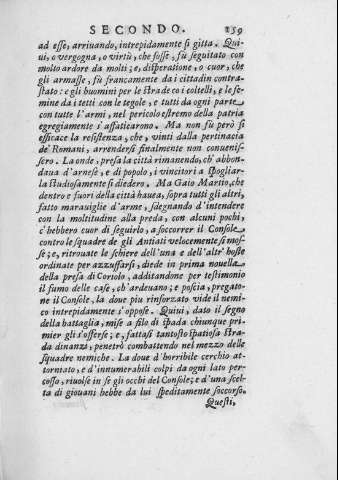 SECONDO. 259
ad esse, arriuando, intrepidamente si gitta. Qui-
ui, o vergogna, o virtù, che fosse, fù seguitato con
molto ardore da molti; e, disperatione, o cuor, che
gli armasse, fù francamente da i cittadin contra-
stato: e gli huomini per le strade co i coltelli, e le fe-
mine da i tetti con le tegole, e tutti da ogni parte
con tutte l'armi, nel pericolo estremo della patria
egregiamente s'affaticarono. Ma non fù però sì
efficace la resistenza, che, vinti dalla pertinacia
de' Romani, arrendersi finalmente non conuenis-
sero. La onde, presa la città rimanendo, ch'abbon-
daua d'arnese, e di popolo, i vincitori a spogliar-
la studiosamente si diedero. Ma Gaio Martio, che
dentro e fuori della città hauea, sopra tutti gli altri,
fatto marauiglie d'arme, sdegnando d'intendere
con la moltitudine alla preda, con alcuni pochi,
c'hebbero cuor di seguirlo, a soccorrer il Console
contro le squadre de gli Antiati velocemente si mos-
se; e, ritrouate le schiere dell'una e dell'altr'hoste
ordinate per azzuffarsi, diede in prima nouella
della presa di Coriolo, additandone per testimonio
il fumo delle case, ch'ardeuano; e poscia, pregato-
ne il Console, la doue più rinforzato vide il nemi-
co intrepidamente s'oppose. Quiui, dato il segno
della battaglia, mise a filo di spada chiunque pri-
mier gli s'offerse; e, fattasi tantosto spatiosa stra-
da dinanzi, penetrò combattendo nel mezzo delle
squadre nemiche. La doue d'horribile cerchio at-
torniato, e d'innumerabili colpi da ogni lato per-
cosso, riuolse in se gli occhi del Console; e d'una scel-
ta di giouani hebbe da lui speditamente soccorso.
Questi,